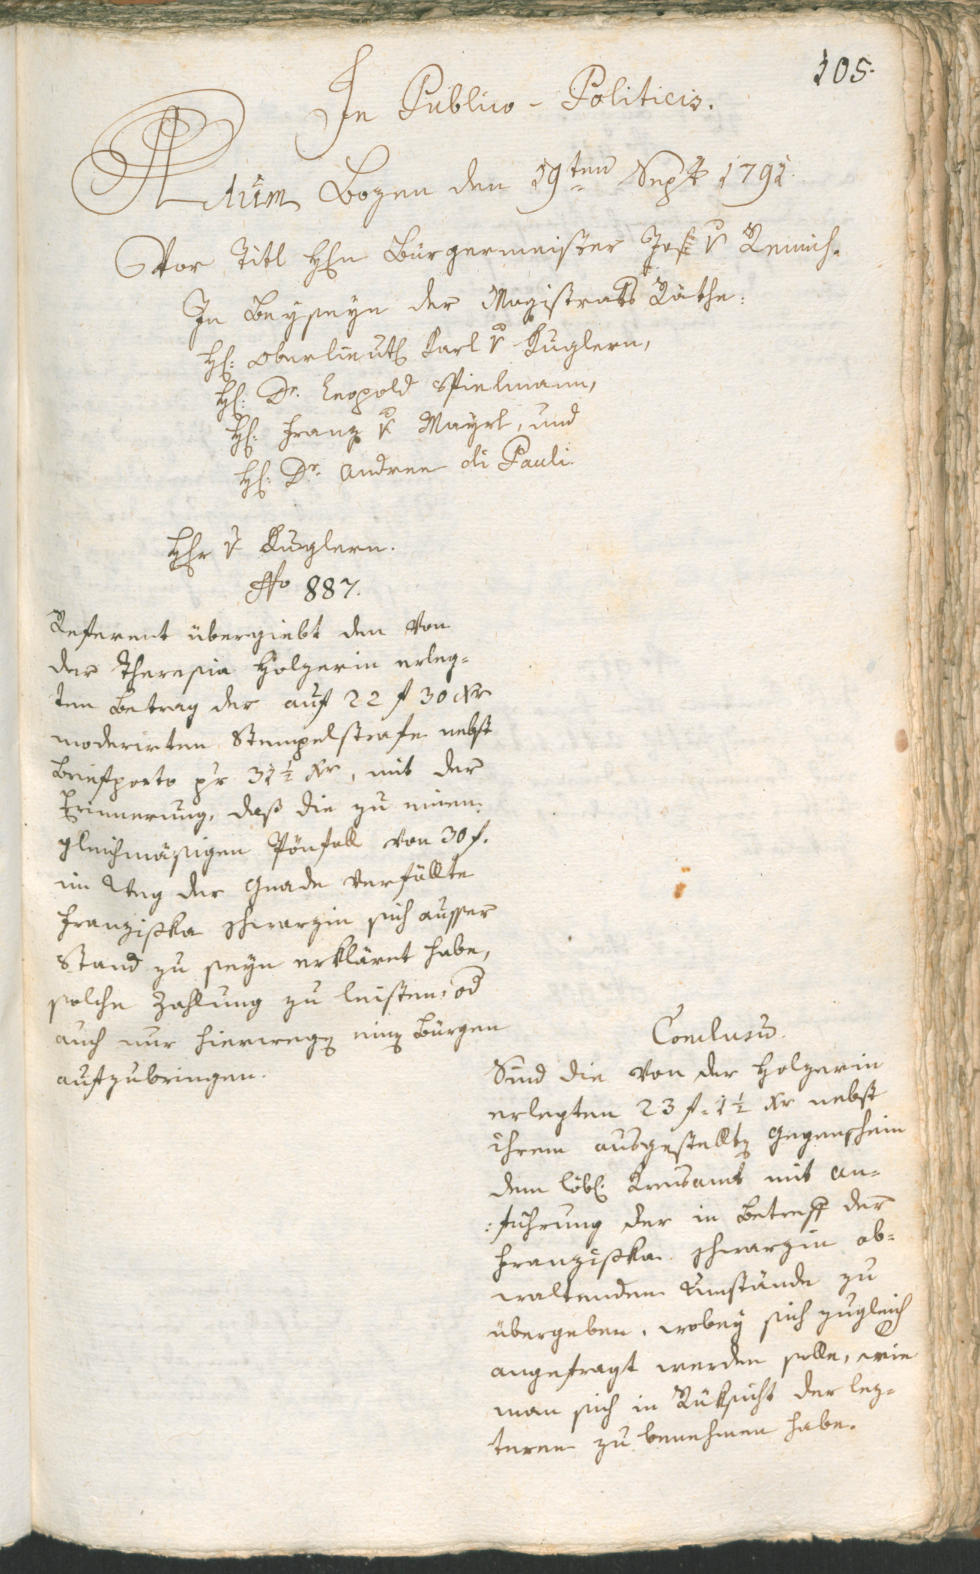 105.
In Publico-Politicis.
Actum Bozen den 19ten Sept 1791.
Vor Titl Hhn Bürgermeister Jos: v Remich.
In Beyseyn der Magistrats Räthe:
Hh: Oberlieut: Karl v Kuglern,
Hh: Dr. Leopold Spielmann,
Hh: Franz v Mayrl, und
Hh: Dr. Andreen di Pauli.
Hhr v Kuglern.
No 887.
Referent übergiebt den von
der Theresia Holzerin erleg-
ten Betrag der auf 22 f 30 xr
moderirten Stempelstrafe nebst
Briefporto pr 31½ xr, mit der
Erinnerung, daß die zu einem
gleichmäßigen Pönfall von 30 f.
im Weg der Gnade verfällte
Franziska Schwarzin sich ausser
Stand zu seyn erkläret habe,
solche Zahlung zu leisten, od
auch nur hierwegen einen Bürgen
aufzubringen.
Conclusum.
Sind die von der Holzerin
erlegten 23 f: 1½ xr nebst
ihrem ausgestellten Gegenschein
dem löbl: Kreisamt mit An-
:führung der in Betreff der
Franziska Schwarzin ob-
waltenden Umstände zu
übergeben, wobey sich zugleich
angefragt werden solle, wie
man sich in Rüksicht der lez-
teren zu benehmen habe.